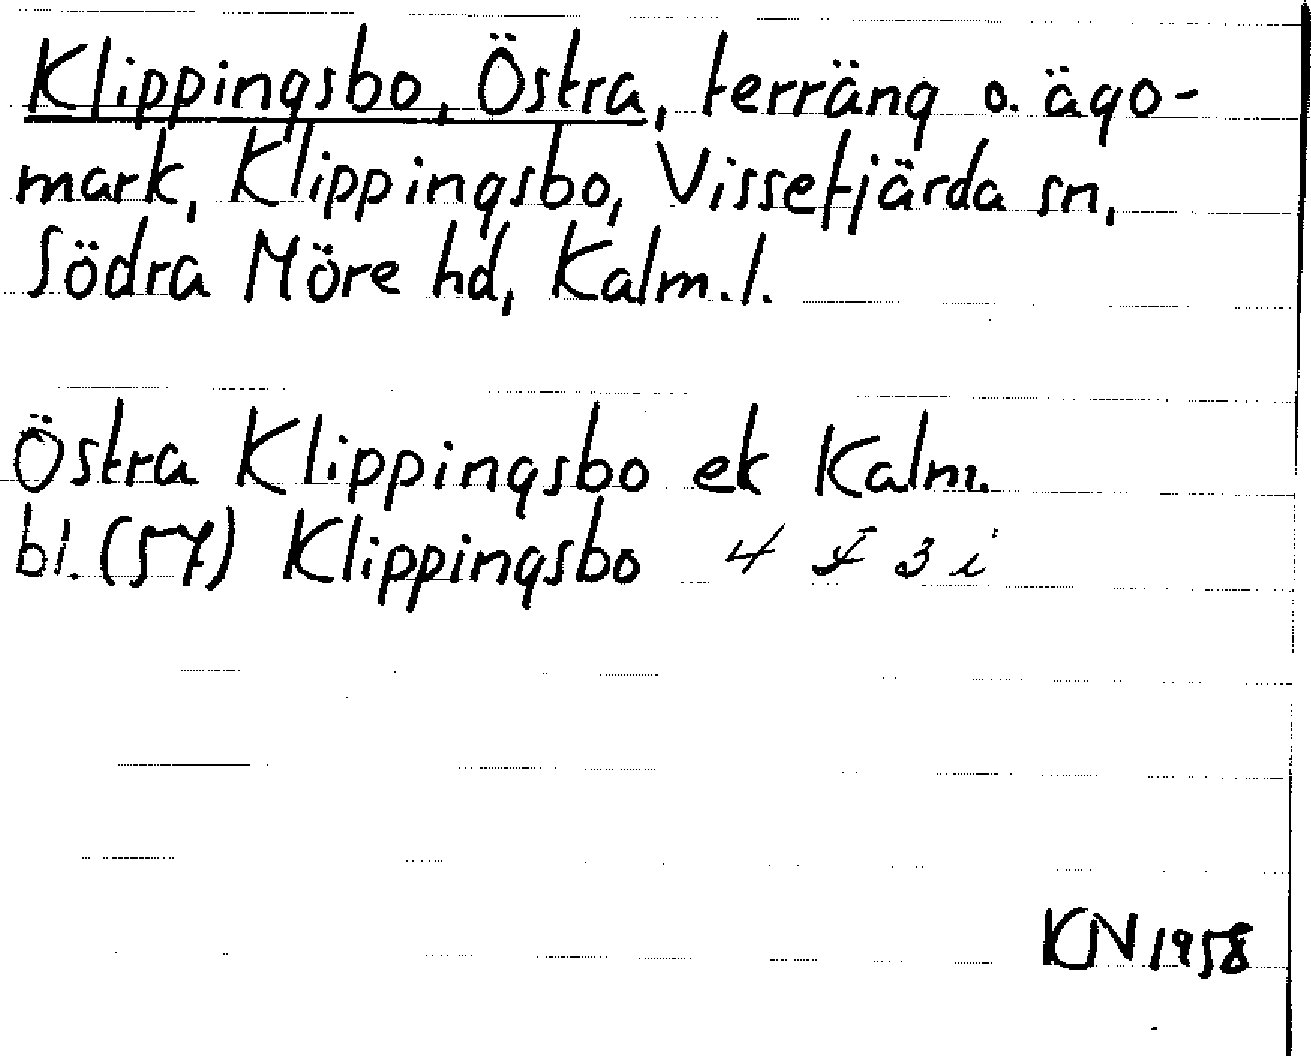 Klippingsbo, Östra, terräng o. ägo-
mark, Klippingsbo, Vissefjärda sn,
Södra Möre hd, Kalm.l.
Östra Klippingsbo ek Kalm.
bl. (57) Klippingsbo 4 F 3 i
KN 1958